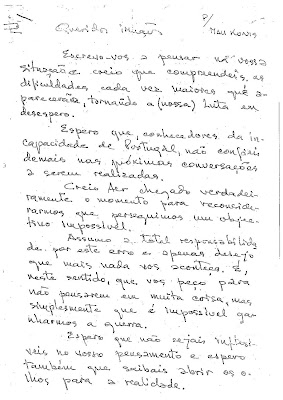 P/
Mau Konis
Queridos irmãos
Escrevo-vos a pensar na vossa
situação e creio que compreendeis, as
dificuldades cada vez maiores que a-
pareceram, tornando a (nossa) luta em
desespero.
Espero que, conhecedores da in-
capacidade de Portugal, não confieis
demais nas próximas conversações
a serem realizadas.
Creio ter chegado verdadei-
ramente o momento para reconside-
rarmos que perseguimos um objec-
tivo impossível.
Assumo a total responsabilida-
de por este erro e apenas desejo
que mais nada vos aconteça. E,
neste sentido, que vos peço para
não pensarem em muita coisa, mas
simplesmente que é impossível ga-
nharmos a guerra.
Espero que não sejais inflexí-
veis no vosso pensamento e espero
também que saibais abrir os o-
lhos para a realidade.